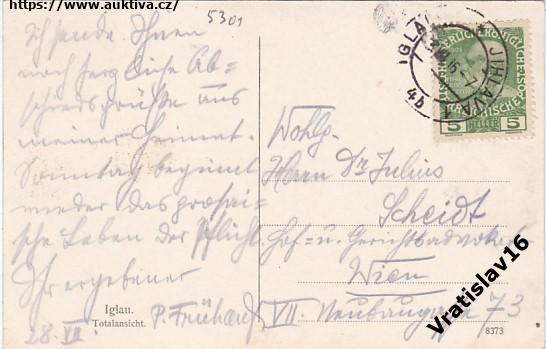 https://www.auktiva.cz/
5301
Ich sende Ihnen
noch herzliche Ab=
schiedsgrüße aus
meiner Heimat.
Sonntag beginnt
wieder das prosai=
sche Leben der Pflicht.
Ihr ergebener
P. Frühauf
28. VII.
Iglau.
Totalansicht.
IGLAU
JIHLAVA 1
4b
5 HELLER 5
Wohlg.
Herrn Dr Julius
Scheidt
Hof= u. Gerichtsadvokat
Wien
VII. Neubaugasse 73
8373
Vratislav16